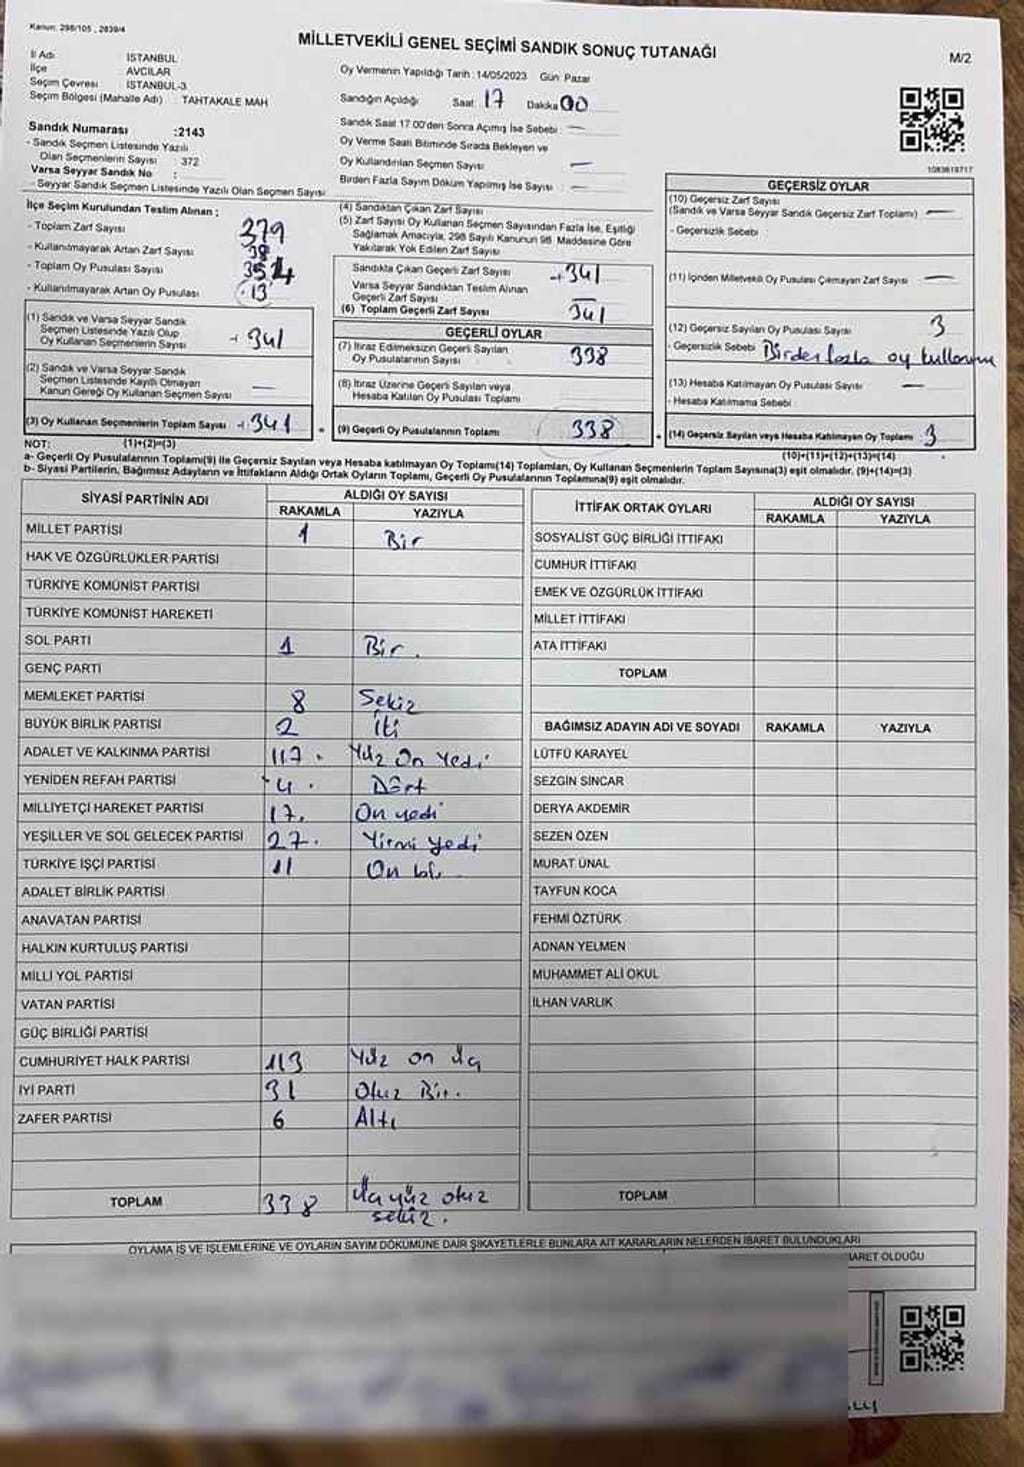 Kanun: 298/105 , 2839/4
MİLLETVEKİLİ GENEL SEÇİMİ SANDIK SONUÇ TUTANAĞI
M/2
İl Adı İSTANBUL
İlçe AVCILAR
Seçim Çevresi İSTANBUL-3
Seçim Bölgesi (Mahalle Adı) : TAHTAKALE MAH
Sandık Numarası :2143
- Sandık Seçmen Listesinde Yazılı
Olan Seçmenlerin Sayısı : 372
Varsa Seyyar Sandık No :
- Seyyar Sandık Seçmen Listesinde Yazılı Olan Seçmen Sayısı:
Oy Vermenin Yapıldığı Tarih : 14/05/2023 Gün: Pazar
Sandığın Açıldığı Saat: 17 Dakika 00
Sandık Saat 17:00'den Sonra Açımış İse Sebebi : —
Oy Verme Saati Bitiminde Sırada Bekleyen ve
Oy Kullandırılan Seçmen Sayısı —
Birden Fazla Sayım Döküm Yapılmış İse Sayısı : —
1083619717
İlçe Seçim Kurulundan Teslim Alınan :
- Toplam Zarf Sayısı 379
- Kullanılmayarak Artan Zarf Sayısı 38
- Toplam Oy Pusulası Sayısı 354
- Kullanılmayarak Artan Oy Pusulası 13
(1) Sandık ve Varsa Seyyar Sandık
Seçmen Listesinde Yazılı Olup
Oy Kullanan Seçmenlerin Sayısı 341
(2) Sandık ve Varsa Seyyar Sandık
Seçmen Listesinde Kayıtlı Olmayan
Kanun Gereği Oy Kullanan Seçmen Sayısı —
(3) Oy Kullanan Seçmenlerin Toplam Sayısı 341
(1)+(2)=(3)
(4) Sandıktan Çıkan Zarf Sayısı
(5) Zarf Sayısı Oy Kullanan Seçmen Sayısından Fazla İse, Eşitliği
Sağlamak Amacıyla, 298 Sayılı Kanunun 98. Maddesine Göre
Yakılarak Yok Edilen Zarf Sayısı
Sandıkta Çıkan Geçerli Zarf Sayısı 341
Varsa Seyyar Sandıktan Teslim Alınan
Geçerli Zarf Sayısı —
(6) Toplam Geçerli Zarf Sayısı 341
GEÇERLİ OYLAR
(7) İtiraz Edilmeksizin Geçerli Sayılan
Oy Pusulalarının Sayısı 338
(8) İtiraz Üzerine Geçerli Sayılan veya
Hesaba Katılan Oy Pusulası Toplamı
(9) Geçerli Oy Pusulalarının Toplamı 338
GEÇERSİZ OYLAR
(10) Geçersiz Zarf Sayısı
(Sandık ve Varsa Seyyar Sandık Geçersiz Zarf Toplamı) —
- Geçersizlik Sebebi :
(11) İçinden Milletvekili Oy Pusulası Çıkmayan Zarf Sayısı —
(12) Geçersiz Sayılan Oy Pusulası Sayısı 3
- Geçersizlik Sebebi Birden fazla oy kullanımı
(13) Hesaba Katılmayan Oy Pusulası Sayısı —
- Hesaba Katılmama Sebebi :
(14) Geçersiz Sayılan veya Hesaba Katılmayan Oy Toplamı 3
(10)+(11)+(12)+(13)=(14)
NOT:
a- Geçerli Oy Pusulalarının Toplamı(9) ile Geçersiz Sayılan veya Hesaba katılmayan Oy Toplamı(14) Toplamları, Oy Kullanan Seçmenlerin Toplam Sayısına(3) eşit olmalıdır. (9)+(14)=(3)
b- Siyasi Partilerin, Bağımsız Adayların ve İttifakların Aldığı Ortak Oyların Toplamı, Geçerli Oy Pusulalarının Toplamına(9) eşit olmalıdır.
SİYASİ PARTİNİN ADI ALDIĞI OY SAYISI
RAKAMLA YAZIYLA
MİLLET PARTİSİ 1 Bir
HAK VE ÖZGÜRLÜKLER PARTİSİ
TÜRKİYE KOMÜNİST PARTİSİ
TÜRKİYE KOMÜNİST HAREKETİ
SOL PARTİ 1 Bir.
GENÇ PARTİ
MEMLEKET PARTİSİ 8 Sekiz
BÜYÜK BİRLİK PARTİSİ 2 İki
ADALET VE KALKINMA PARTİSİ 117. Yüz On Yedi
YENİDEN REFAH PARTİSİ 4. Dört
MİLLİYETÇİ HAREKET PARTİSİ 17. On yedi
YEŞİLLER VE SOL GELECEK PARTİSİ 27. Yirmi yedi
TÜRKİYE İŞÇİ PARTİSİ 11 On bir
ADALET BİRLİK PARTİSİ
ANAVATAN PARTİSİ
HALKIN KURTULUŞ PARTİSİ
MİLLİ YOL PARTİSİ
VATAN PARTİSİ
GÜÇ BİRLİĞİ PARTİSİ
CUMHURİYET HALK PARTİSİ 113 Yüz on üç
İYİ PARTİ 31 Otuz Bir.
ZAFER PARTİSİ 6 Altı
TOPLAM 338 Üç yüz otuz
sekiz.
İTTİFAK ORTAK OYLARI ALDIĞI OY SAYISI
RAKAMLA YAZIYLA
SOSYALİST GÜÇ BİRLİĞİ İTTİFAKI
CUMHUR İTTİFAKI
EMEK VE ÖZGÜRLÜK İTTİFAKI
MİLLET İTTİFAKI
ATA İTTİFAKI
TOPLAM
BAĞIMSIZ ADAYIN ADI VE SOYADI RAKAMLA YAZIYLA
LÜTFÜ KARAYEL
SEZGİN SİNCAR
DERYA AKDEMİR
SEZEN ÖZEN
MURAT ÜNAL
TAYFUN KOCA
FEHMİ ÖZTÜRK
ADNAN YELMEN
MUHAMMET ALİ OKUL
İLHAN VARLIK
TOPLAM
OYLAMA İŞ VE İŞLEMLERİNE VE OYLARIN SAYIM DÖKÜMÜNE DAİR ŞİKAYETLERLE BUNLARA AİT KARARLARIN NELERDEN İBARET BULUNDUKLARI
BARET OLDUĞU